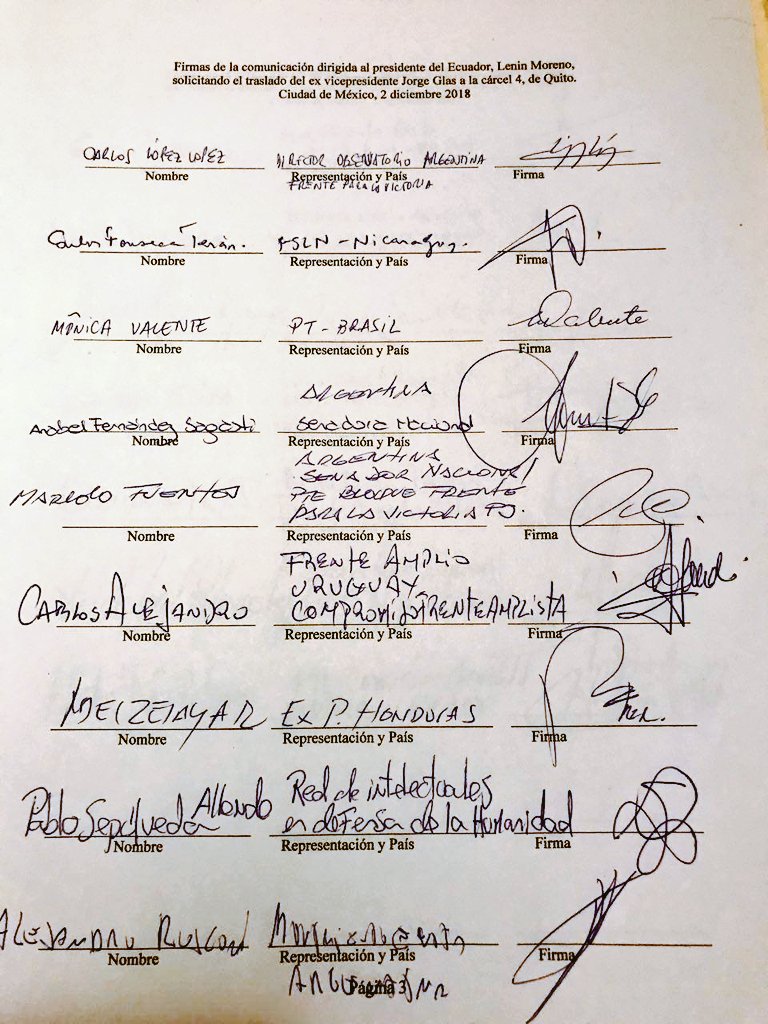 Firmas de la comunicación dirigida al presidente del Ecuador, Lenin Moreno,
solicitando el traslado del ex vicepresidente Jorge Glas a la cárcel 4, de Quito.
Ciudad de México, 2 diciembre 2018
CARLOS LÓPEZ LOPEZ DIRECTOR OBSERVATORIO ARGENTINA
Nombre Representación y País Firma
FRENTE PARA LA VICTORIA
Carlos Fonseca Terán. FSLN - Nicaragua.
Nombre Representación y País Firma
MÔNICA VALENTE PT - BRASIL
Nombre Representación y País Firma
ARGENTINA
Anabel Fernández Sagasti Senadora Nacional
Nombre Representación y País Firma
ARGENTINA
SENADOR NACIONAL
MARCELO FUENTES PTE BLOQUE FRENTE
PARA LA VICTORIA PJ.
Nombre Representación y País Firma
FRENTE AMPLIO
URUGUAY
CARLOS ALEJANDRO COMPROMISO FRENTEAMPLISTA
Nombre Representación y País Firma
MEL ZELAYA R Ex P. HONDURAS
Nombre Representación y País Firma
Pablo Sepúlveda Allende Red de intelectuales
en defensa de la Humanidad
Nombre Representación y País Firma
ALEJANDRO
Nombre Representación y País Firma
ARGENTINA
Página 3